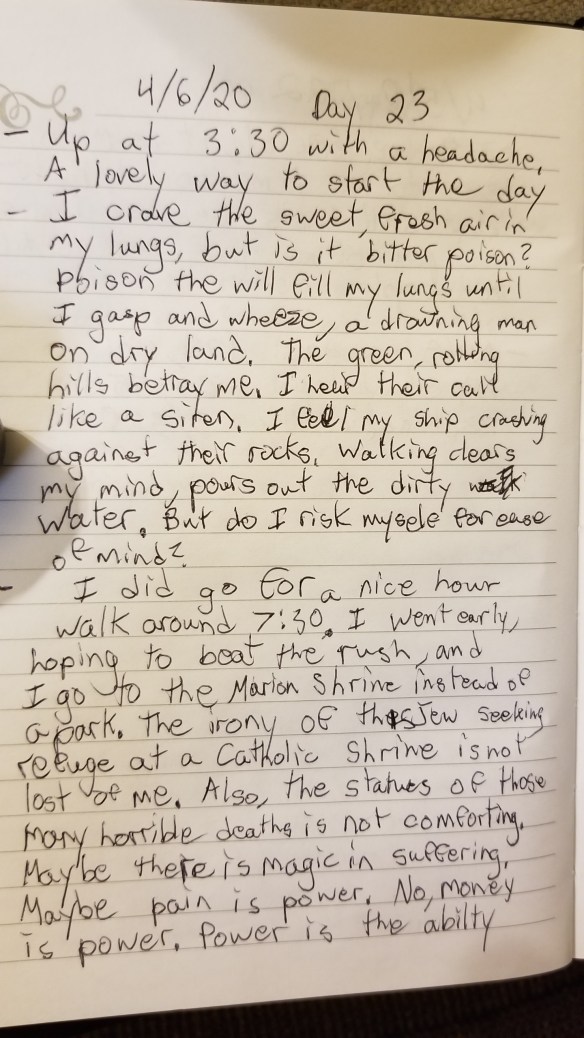 4/6/20 Day 23
- Up at 3:30 with a headache.
A lovely way to start the day
- I crave the sweet, fresh air in
my lungs, but is it bitter poison?
Poison the will fill my lungs until
I gasp and wheeze, a drowning man
on dry land. The green, rolling
hills betray me. I hear their call
like a siren. I feel my ship crashing
against their rocks. Walking clears
my mind, pours out the dirty
water. But do I risk myself for ease
of mind?
- I did go for a nice hour
walk around 7:30. I went early,
hoping to beat the rush, and
I go to the Marion Shrine instead of
a park. The irony of this Jew seeking
refuge at a Catholic Shrine is not
lost of me. Also, the statues of those
many horrible deaths is not comforting.
Maybe there is magic in suffering.
Maybe pain is power. No, money
is power. Power is the abilty